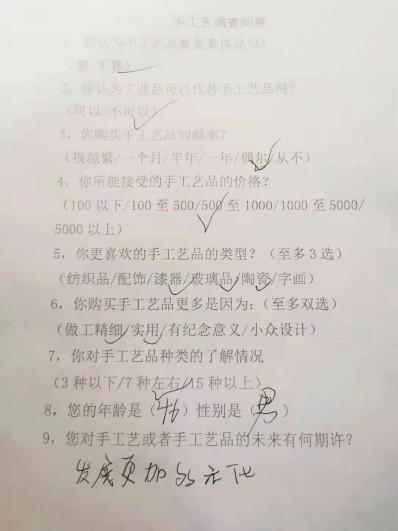 手工艺调查问卷
1，您认为手工艺品算是奢侈品吗？
（算 不算）
2，你认为工业品可以代替手工艺品吗？
（可以/不可以）
3，你购买手工艺品的频率？
（很频繁/一个月/半年/一年/偶尔/从不）
4，你所能接受的手工艺品的价格？
（100 以下/100 至 500/500 至 1000/1000 至 5000/
5000 以上）
5，你更喜欢的手工艺品的类型？（至多 3 选）
（纺织品/配饰/漆器/玻璃品/陶瓷/字画）
6，你购买手工艺品更多是因为：（至多双选）
（做工精细/实用/有纪念意义/小众设计）
7，你对手工艺品种类的了解情况
（3 种以下/7 种左右/15 种以上）
8，您的年龄是（46）性别是（男）
9，您对手工艺或者手工艺品的未来有何期许？
发展更加的